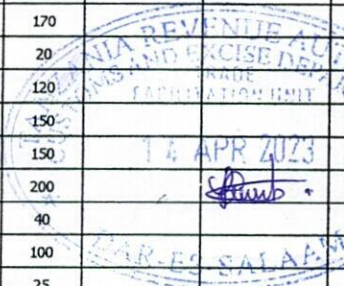 170
20
120
150
150
200
40
100
25
TANZANIA REVENUE AUT
CUSTOMS AND EXCISE DEPAR
TRADE
FACILITATION UNIT
14 APR 2023
DAR-ES-SALAAM